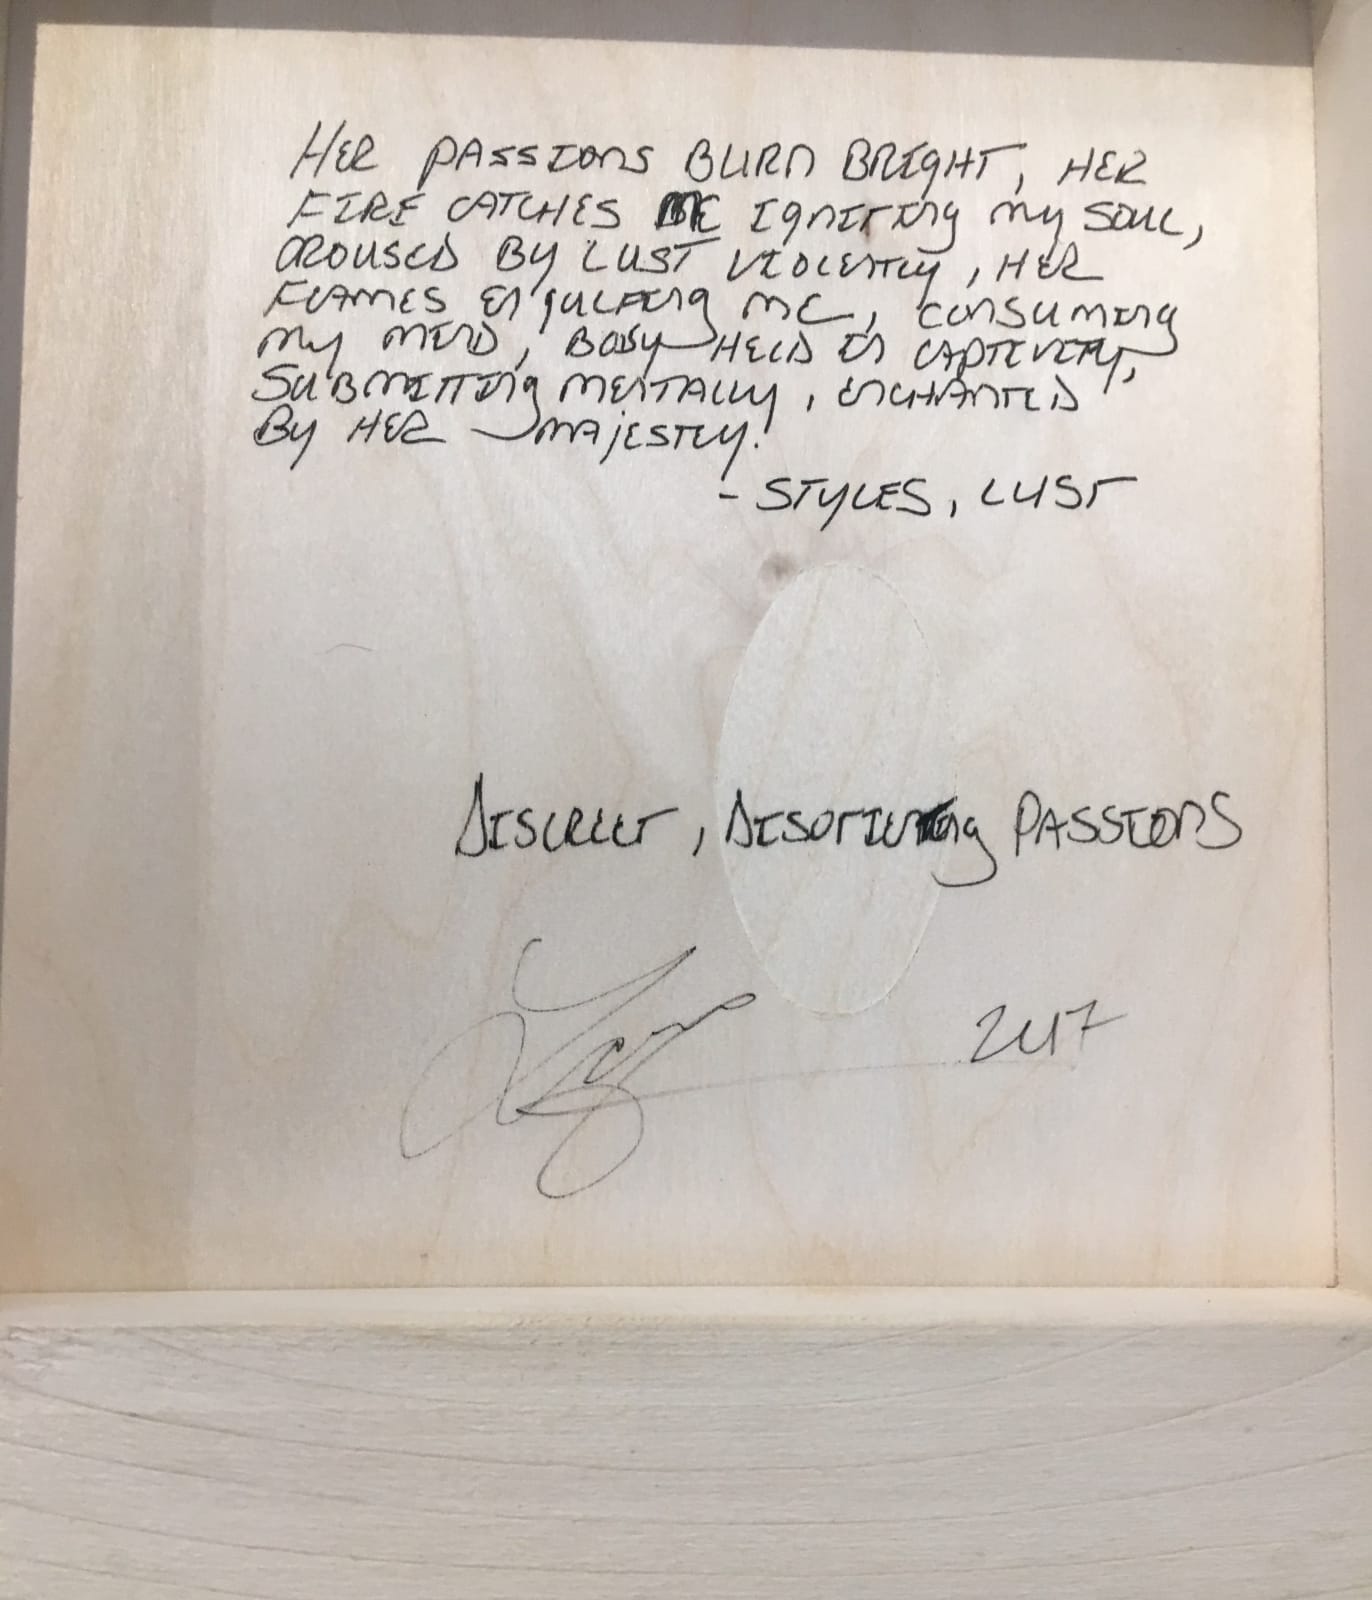 HER PASSIONS BURN BRIGHT, HER
FIRE CATCHES ME IGNITING MY SOUL,
AROUSED BY LUST VIOLENTLY, HER
FLAMES ENGULFING ME, CONSUMING
MY MIND, BODY HELD IN CAPTIVITY,
SUBMITTING MENTALLY, ENCHANTED
BY HER MAJESTY!
- STYLES, LUST
DISCREET, DISORIENTING PASSIONS
2017